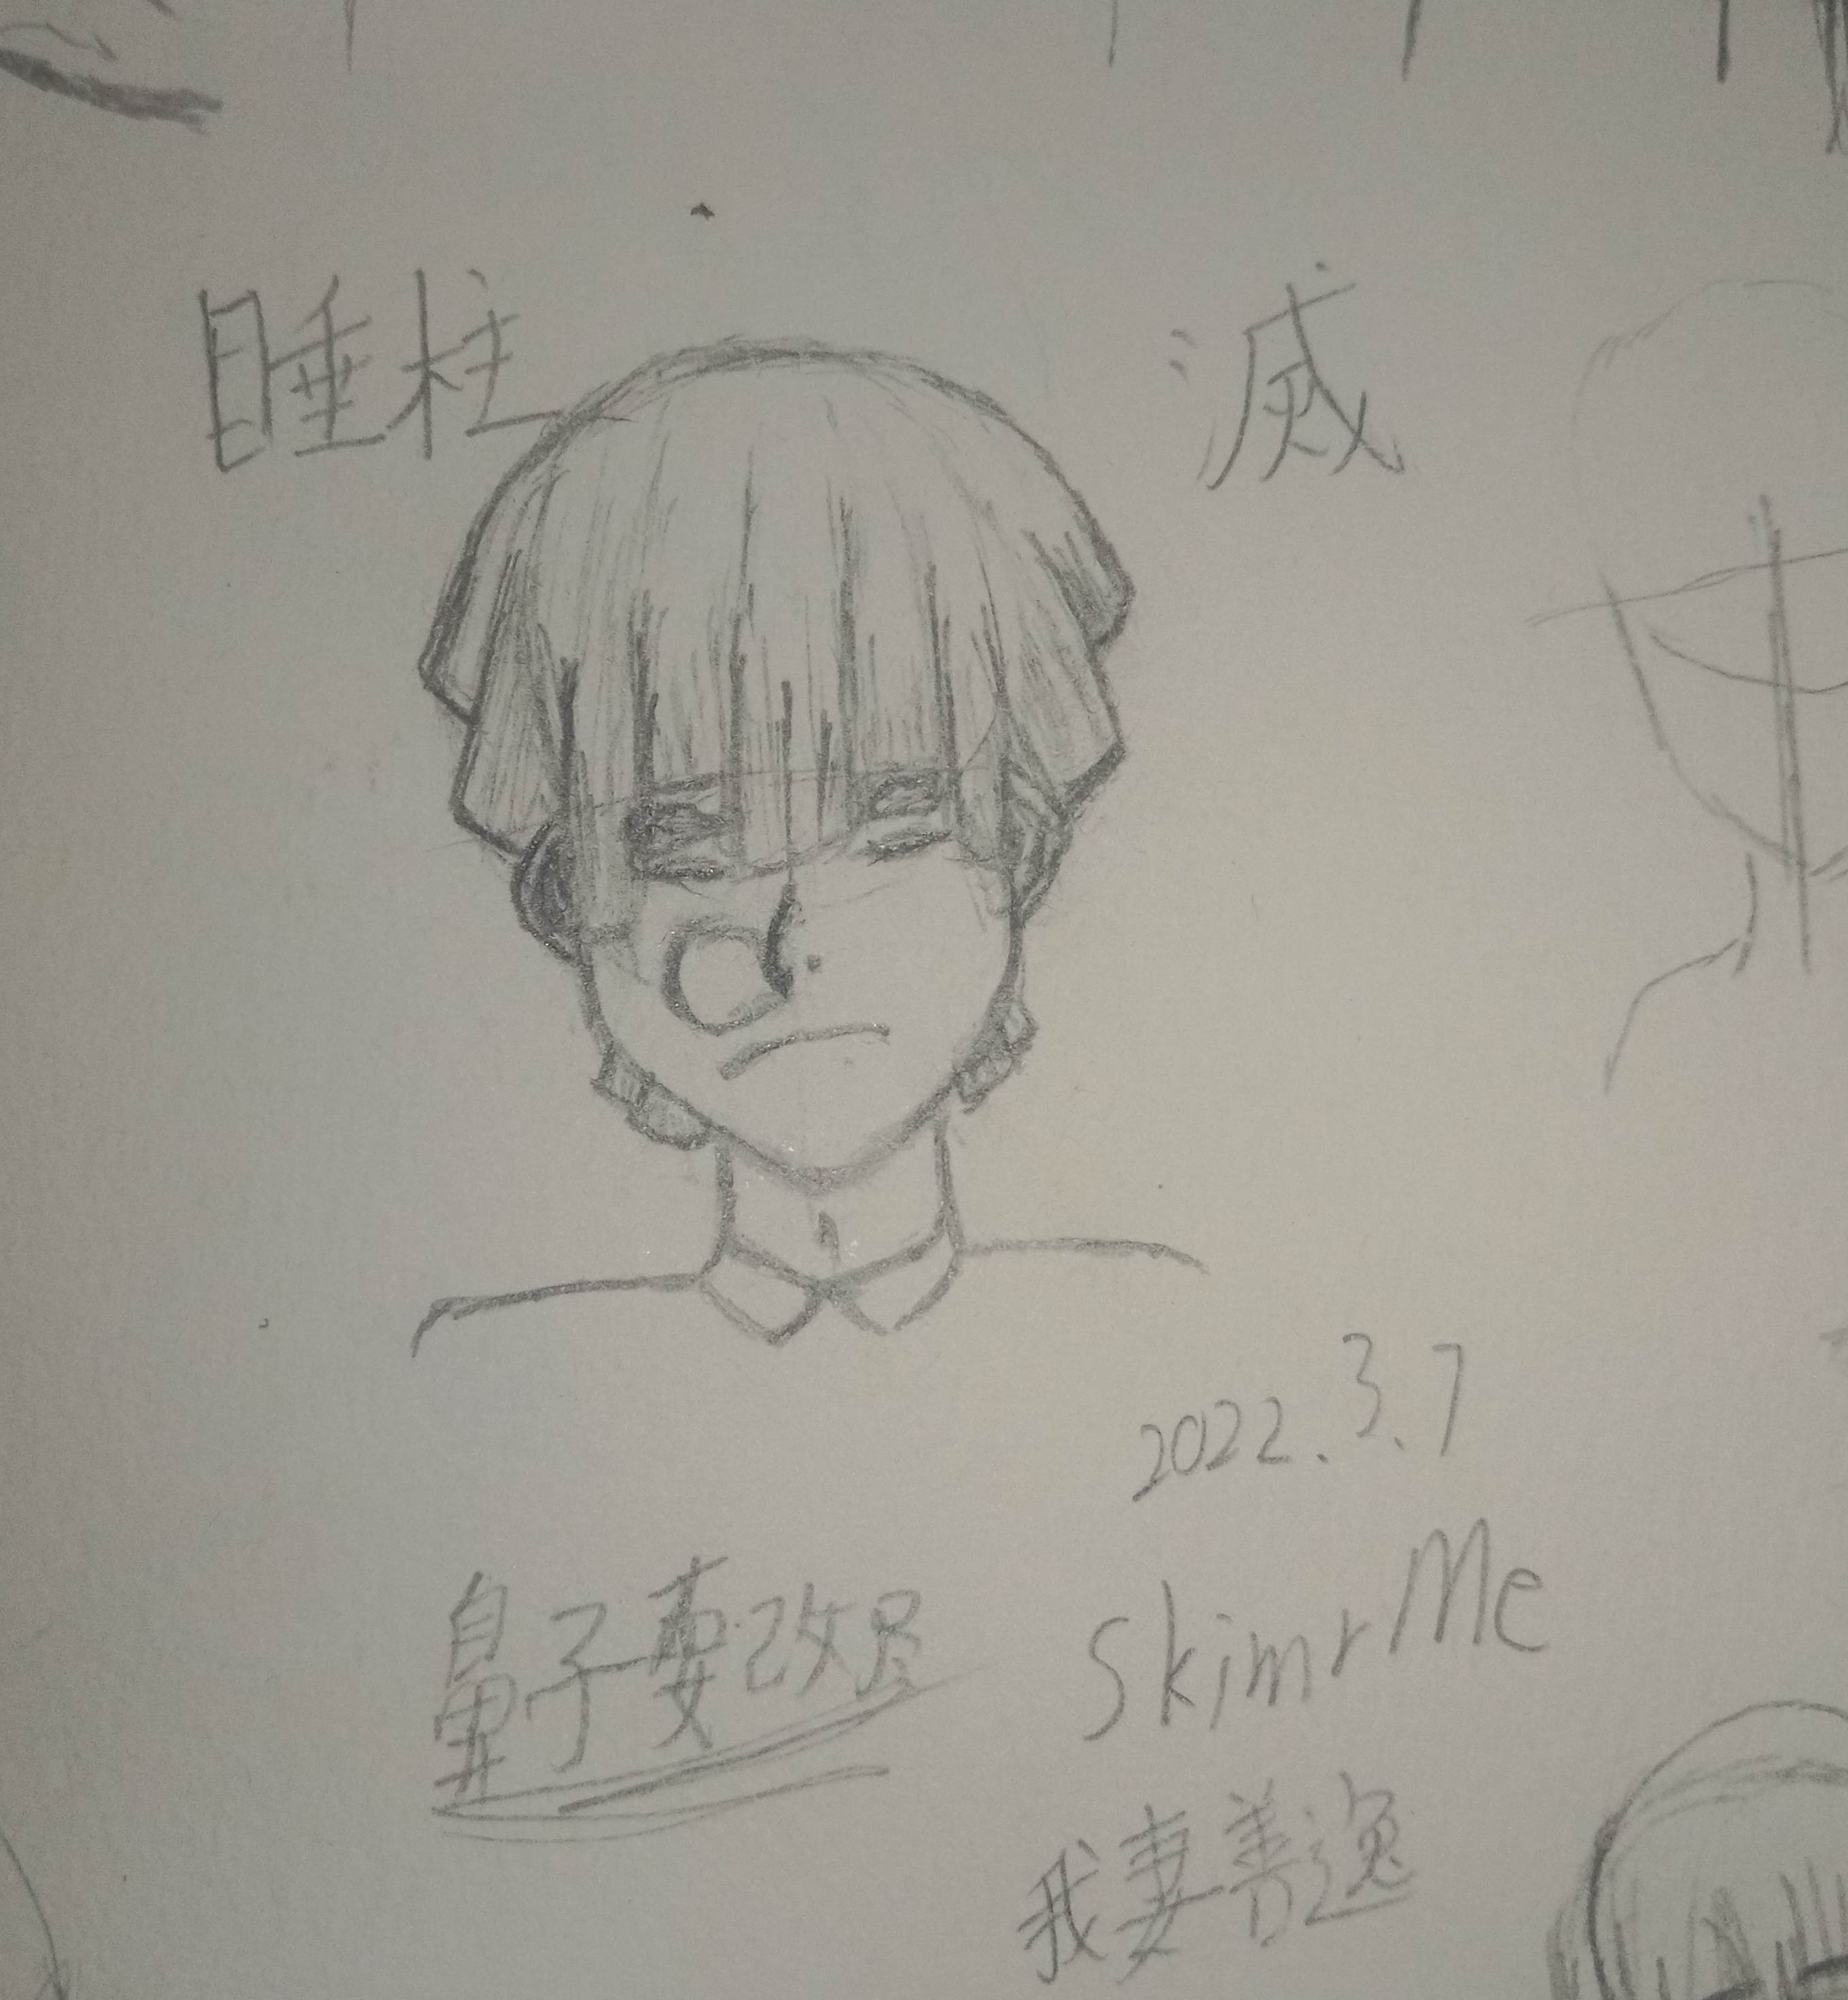 睡柱 滅
2022.3.7
鼻子要改
SkimrMe
我妻善逸